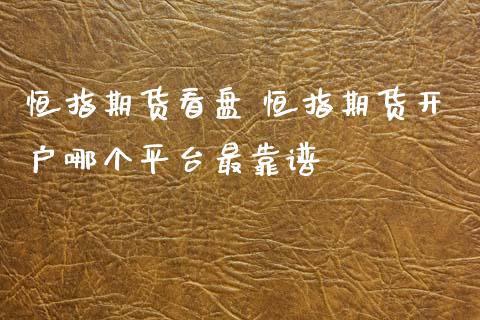 恒指期货看盘 恒指期货开
户哪个平台最靠谱